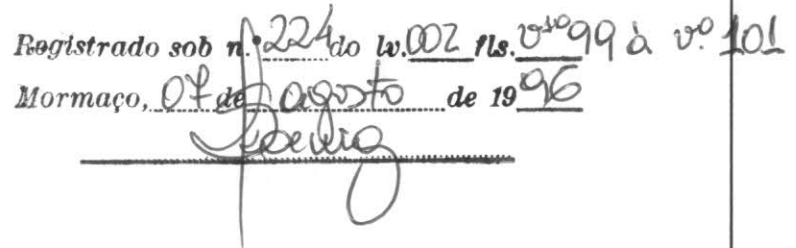 Registrado sob n.º 224 do lv. 002 fls. vº 99 à vº 101
Mormaço, 07 de agosto de 1996